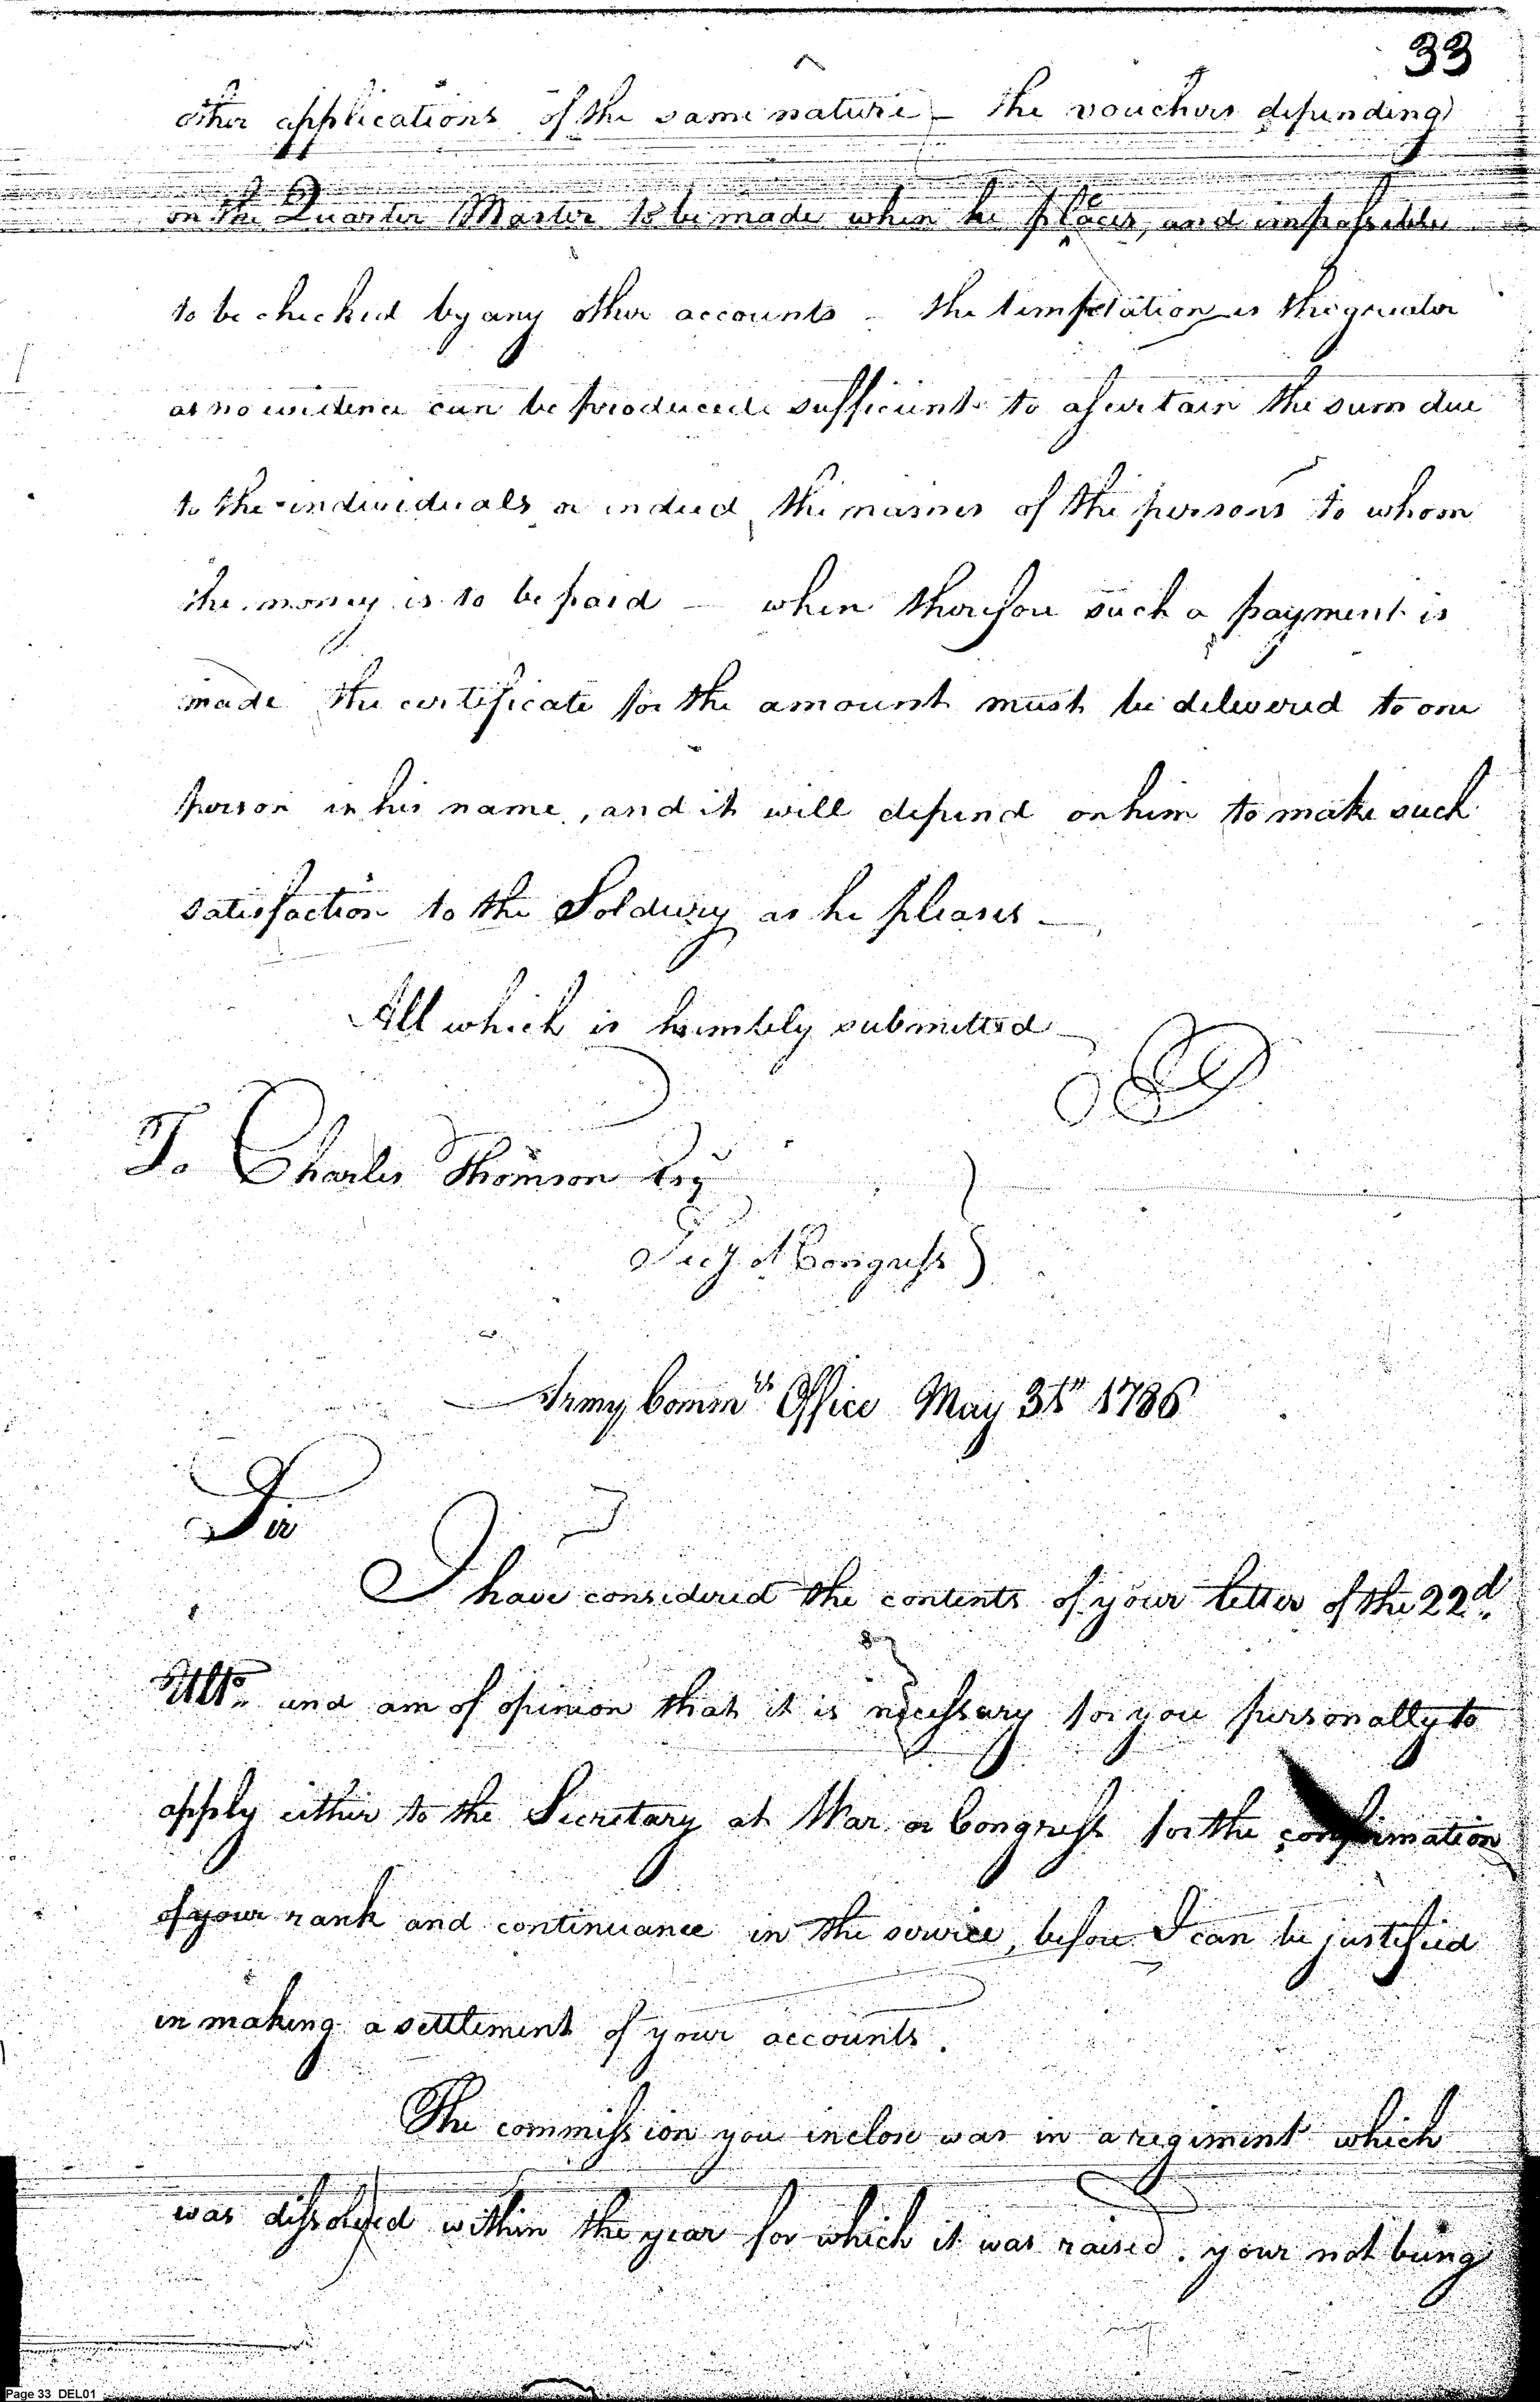 33
other applications of the same nature – the vouchers depending
on the Quarter Master to be made when he pleaces, and impossible
to be checked by any other accounts – the temptation is the greater
as no evidence can be produced sufficient to ascertain the sum due
to the individuals or indeed the names of the persons to whom
the money is to be paid – when therefore such a payment is
made the certificate for the amount must be delivered to one
person in his name, and it will depend on him to make such
satisfaction to the Soldiery as he pleases –
All which is humbly submitted –
To Charles Thomson Esq
Secy of Congress
Army Commrs Office May 31st 1786
Sir
I have considered the contents of your letter of the 22d
Ulto and am of opinion that it is necessary for you personally to
apply either to the Secretary at War or Congress for the confirmation
of your rank and continuance in the service, before I can be justified
in making a settlement of your accounts.
The commission you inclose was in a regiment which
was dissolved within the year for which it was raised. your not being
Page 33 DEL01